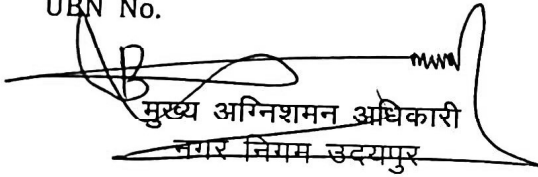 UBN No.
मुख्य अग्निशमन अधिकारी
नगर निगम उदयपुर